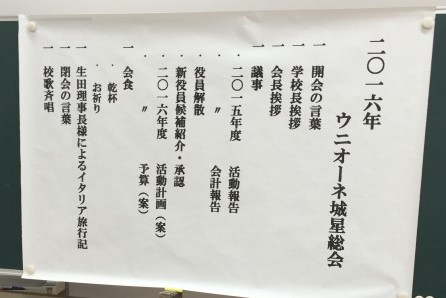 二〇一六年
ウニオーネ城星総会
一 開会の言葉
一 学校長挨拶
一 会長挨拶
一 議事
・二〇一五年度 活動報告
・ 〃 会計報告
・役員解散
・新役員候補紹介・承認
・二〇一六年度 活動計画（案）
・ 〃 予算（案）
一 会食
・乾杯
・お祈り
一 生田理事長様によるイタリア旅行記
一 閉会の言葉
一 校歌斉唱